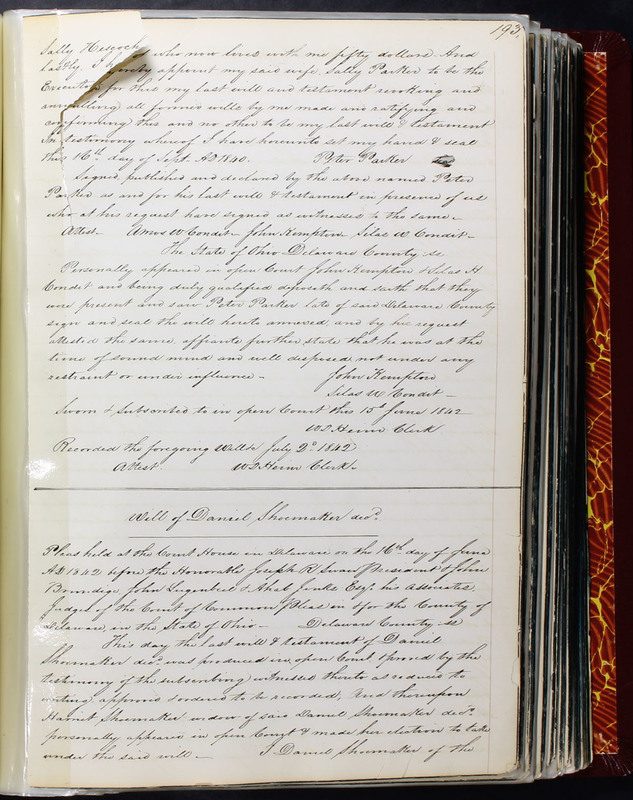 193
Sally Hescock who now lives with me fifty dollars. And
lastly I hereby appoint my said wife Sally Parker to be the
Executor for this my last will and testament revoking and
annulling all former wills by me made and ratifying and
confirming this and no other to be my last will & testament
In testimony whereof I have hereunto set my hand & seal
this 16th day of Sept. AD 1840. Peter Parker
Signed published and declared by the above named Peter
Parker as and for his last will & testament in presence of us
who at his request have signed as witnesses to the same
Attest Amos W Condit John Kempton Silas W Condit
The State of Ohio Delaware County ss
Personally appeared in open Court John Kempton & Silas H
Condit and being duly qualified deposeth and saith that they
were present and saw Peter Parker late of said Delaware County
sign and seal the will hereto annexed, and by his request
attested the same, affiants further state that he was at the
time of sound mind and well disposed not under any
restraint or undue influence
John Kempton
Silas W Condit
Sworn & Subscribed to in open Court this 15th June 1842
Clerk
Recorded the foregoing Will July 2d 1842
Attest Clerk
Will of Daniel Shoemaker decd.
Pleas held at the Court House in Delaware on the 16th day of June
AD 1842 before the Honorable Joseph R Swan President & John
Lugenbeel & Ahab Jinks Esqrs his Associates
Judges of the Court of Common Pleas in & for the County of
Delaware, in the State of Ohio Delaware County ss
This day the last will & testament of Daniel
Shoemaker decd was produced in open Court & proved by the
testimony of the subscribing witnesses thereto as reduced to
writing approved & ordered to be recorded, And thereupon
Harriet Shoemaker widow of said Daniel Shoemaker decd.
personally appeared in open Court & made her election to take
under the said will I Daniel Shoemaker of the